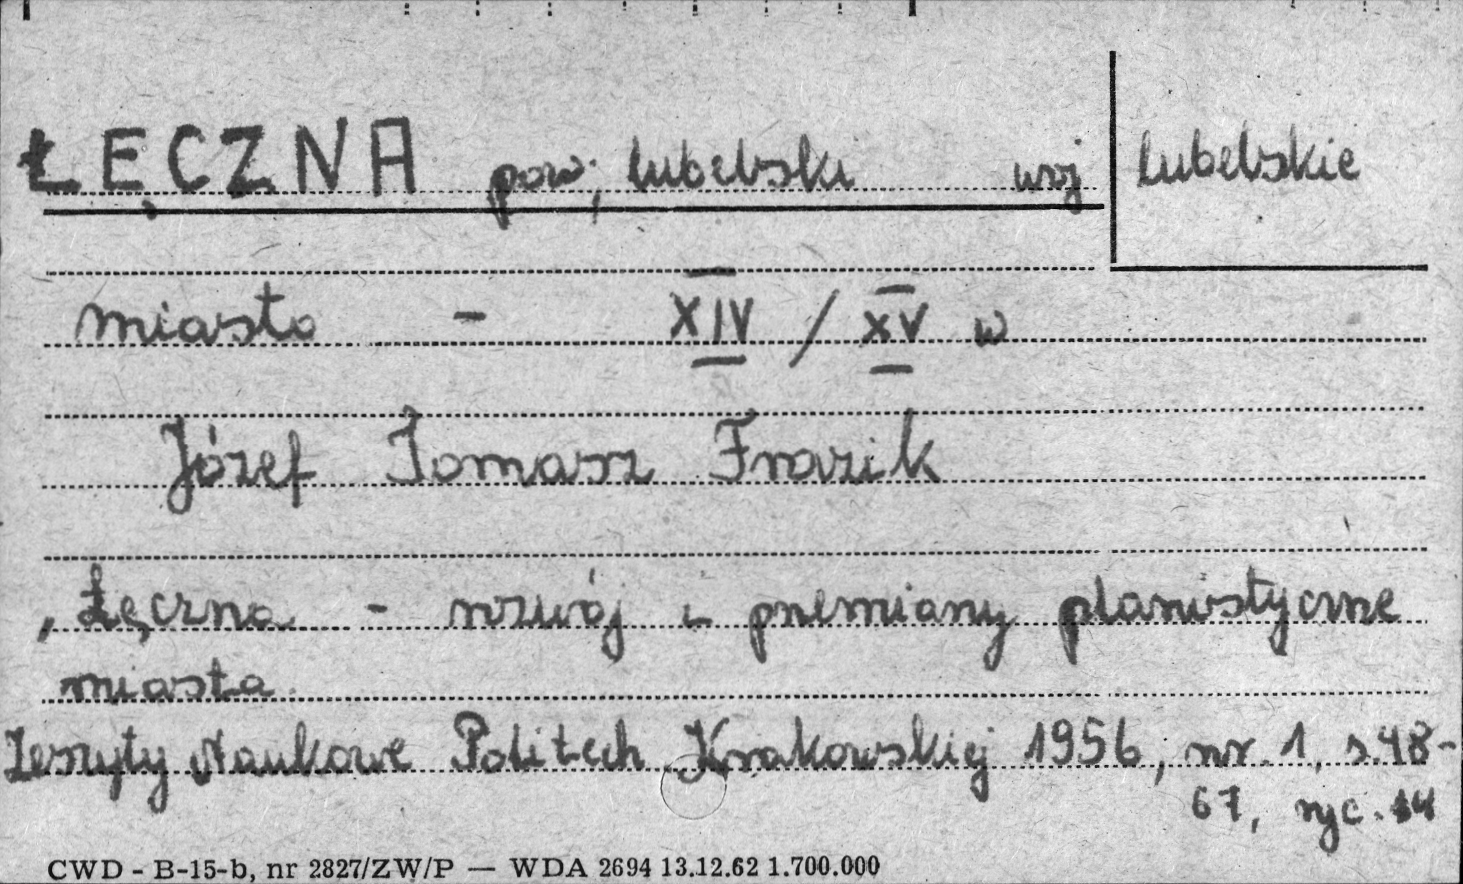 ŁĘCZNA pow, lubelski woj lubelskie
miasto - XIV / XV w
Józef Tomasz Frazik
„Łęczna - rozwój i przemiany planistyczne
miasta
Zeszyty Naukowe Politech Krakowskiej 1956, nr. 1, s. 48-
67, ryc. 14
CWD - B-15-b, nr 2827/ZW/P — WDA 2694 13.12.62 1.700.000